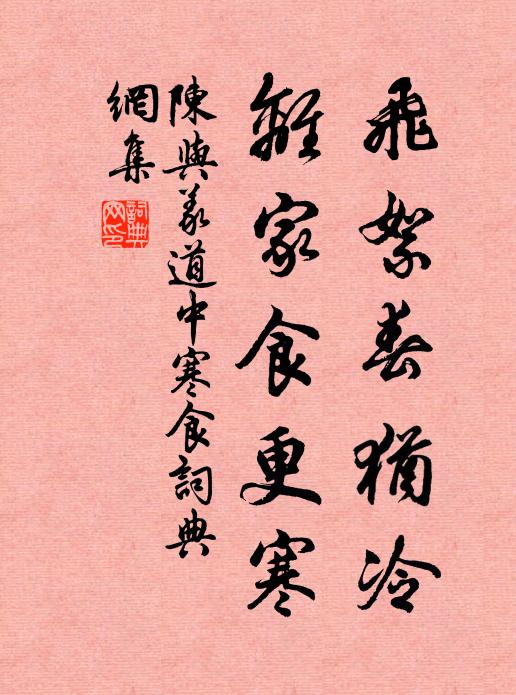 飛絮春猶冷
離家食更寒
陳與義道中寒食詞典
網集
詞典
網印